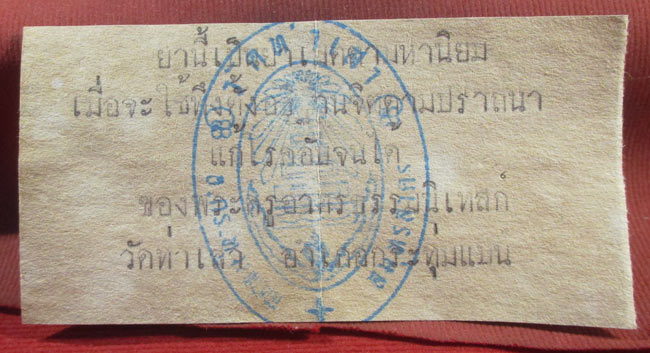 ยานี้เป็นยาเมตตามหานิยม
เมื่อจะใช้พึงตั้ง จิตตามปรารถนา
แก้โรคอับจนได้
ของพระครูสาครธรรมนิเทสก์
วัดท่าเสา อำเภอกระทุ่มแบน
วัดท่าเสา